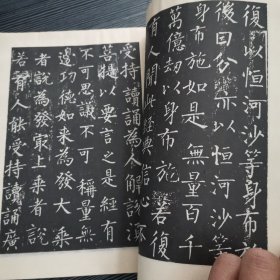 復以恒河沙等身布
後日分亦以恒河沙
身布施如是無量百千
萬億劫以身布施若復
有人聞此經典信心
受持讀誦為人解說
菩提以要言之是經有
不可思議不可稱量無
邊功德如來為發大乘
者說為發最上乘者說
若有人能受持讀誦廣